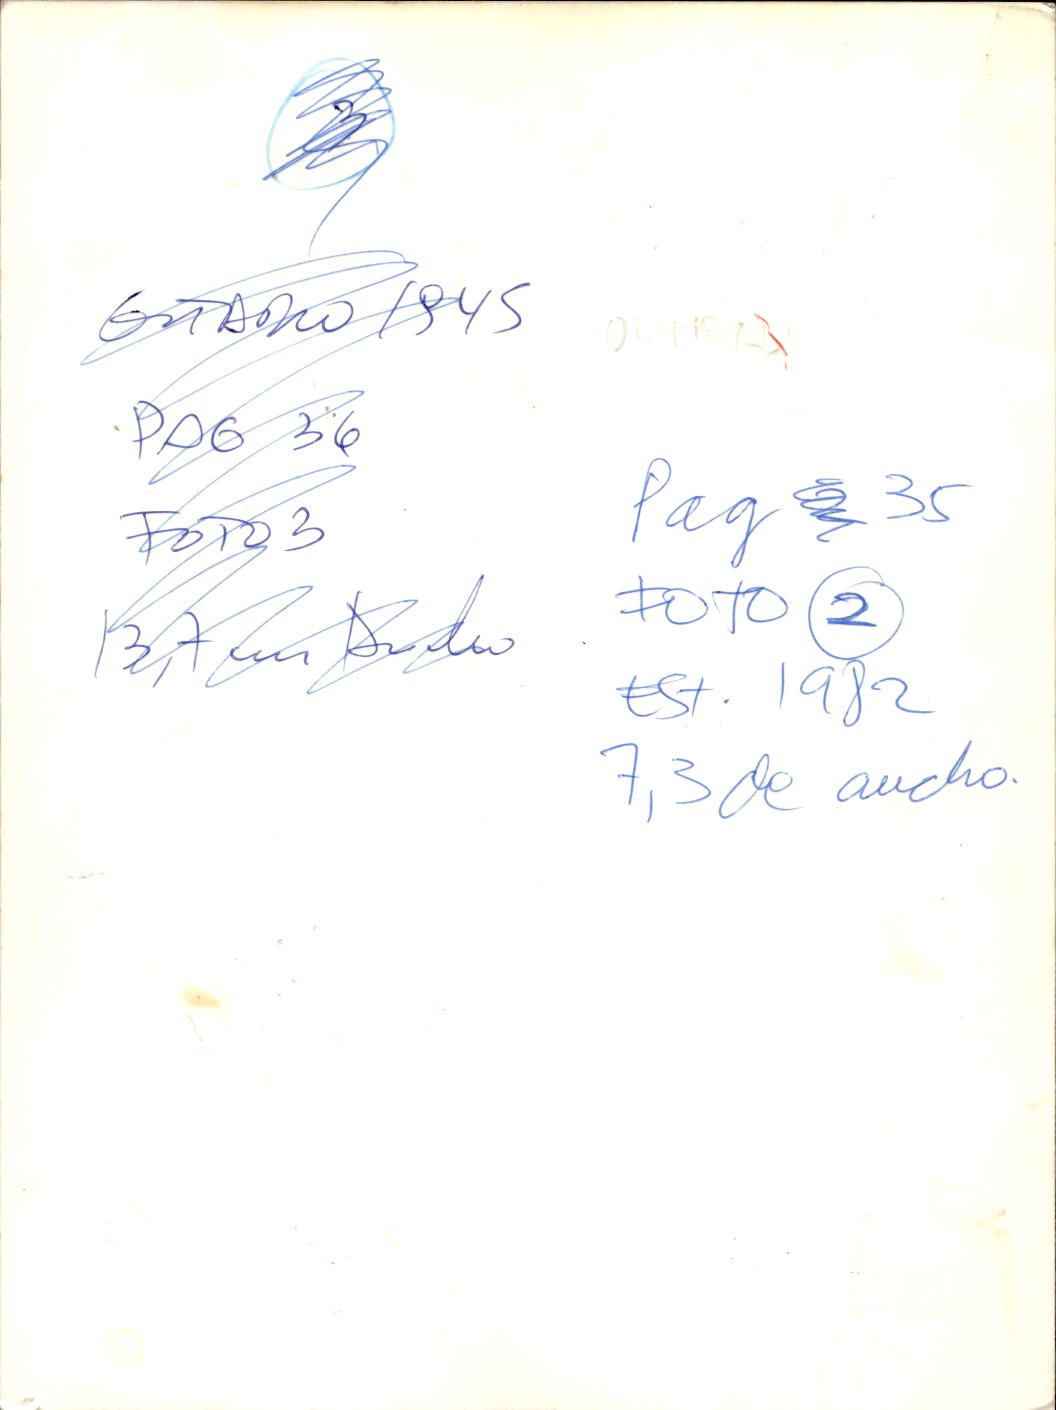 3
ESTADIO 1945
PAG 36
FOTO 3
13,7 cm Ancho
Pag 35
FOTO 2
EST. 1982
7,3 de ancho.